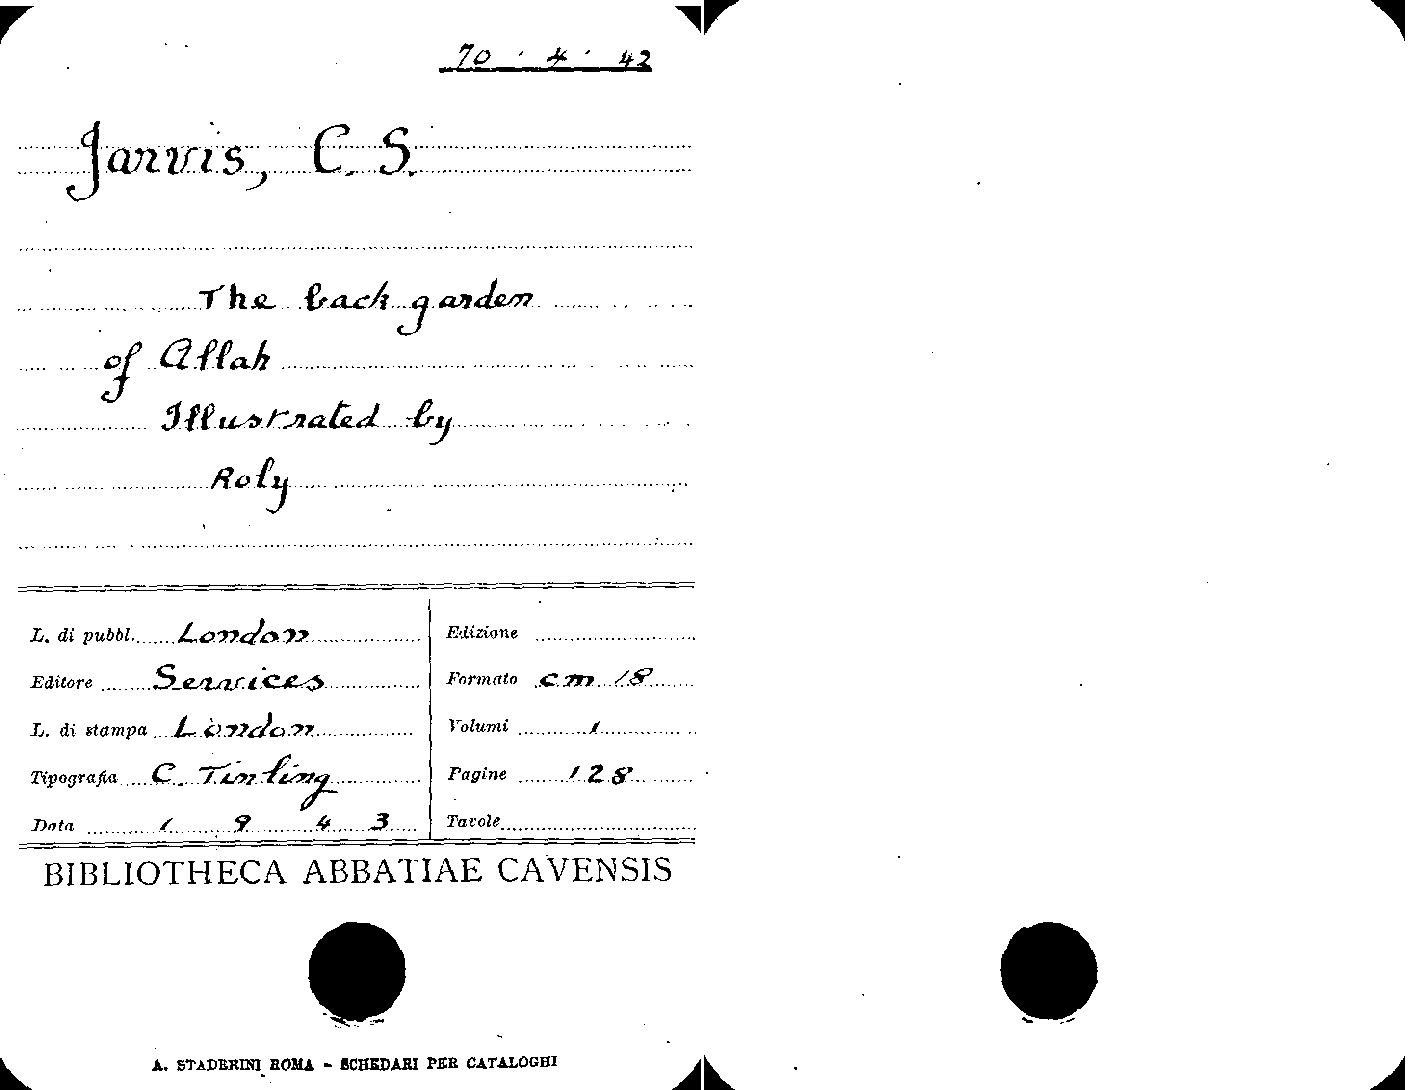 70 · 4 · 42
Jarvis, C. S.
The back garden
of Allah
Illustrated by
Roly
L. di pubbl. London
Editore Services
L. di stampa London
Tipografia C. Tinling
Data 1943
Edizione
Formato cm 18
Volumi 1
Pagine 128
Tavole
BIBLIOTHECA ABBATIAE CAVENSIS
A. STADERINI ROMA - SCHEDARI PER CATALOGHI